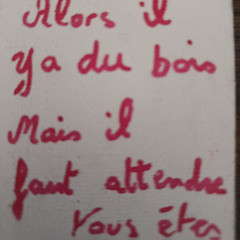 Alors il
y a du bois
Mais il
faut attendre
Vous êtes